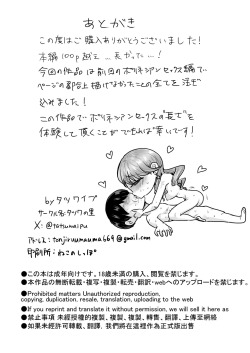 あとがき
この度はご購入ありがとうございました!
本編100p超え…長かった…!
今回の作品は前回のポリネシアンセックス編で
ページの都合上描けなかったことの全てを注ぎ
込みました!
この作品でポリネシアンセックスの"長さ"を
体験して頂くことができれば幸いです!
byタツワイプ
サークル名:タツワの里
X:@tatsuwaipu
アドレス:tonjiruumauma669@gmail.com
印刷所:ねこのしっぽ
●この本は成年向けです。18歳未満の購入、閲覧を禁じます。
●本作品の無断転載・複写・複製・転売・翻訳・webへのアップロードを禁じます。
●Prohibited matters Unauthorized reproduction,
copying, duplication, resale, translation, uploading to the web
●If you reprint and translate it without permission, we will sell it here as
●禁止事項 未經授權的複製、複製、複製、轉售、翻譯、上傳至網絡
●如果未經許可轉載、翻譯、我們將在這裡作為正式版出售